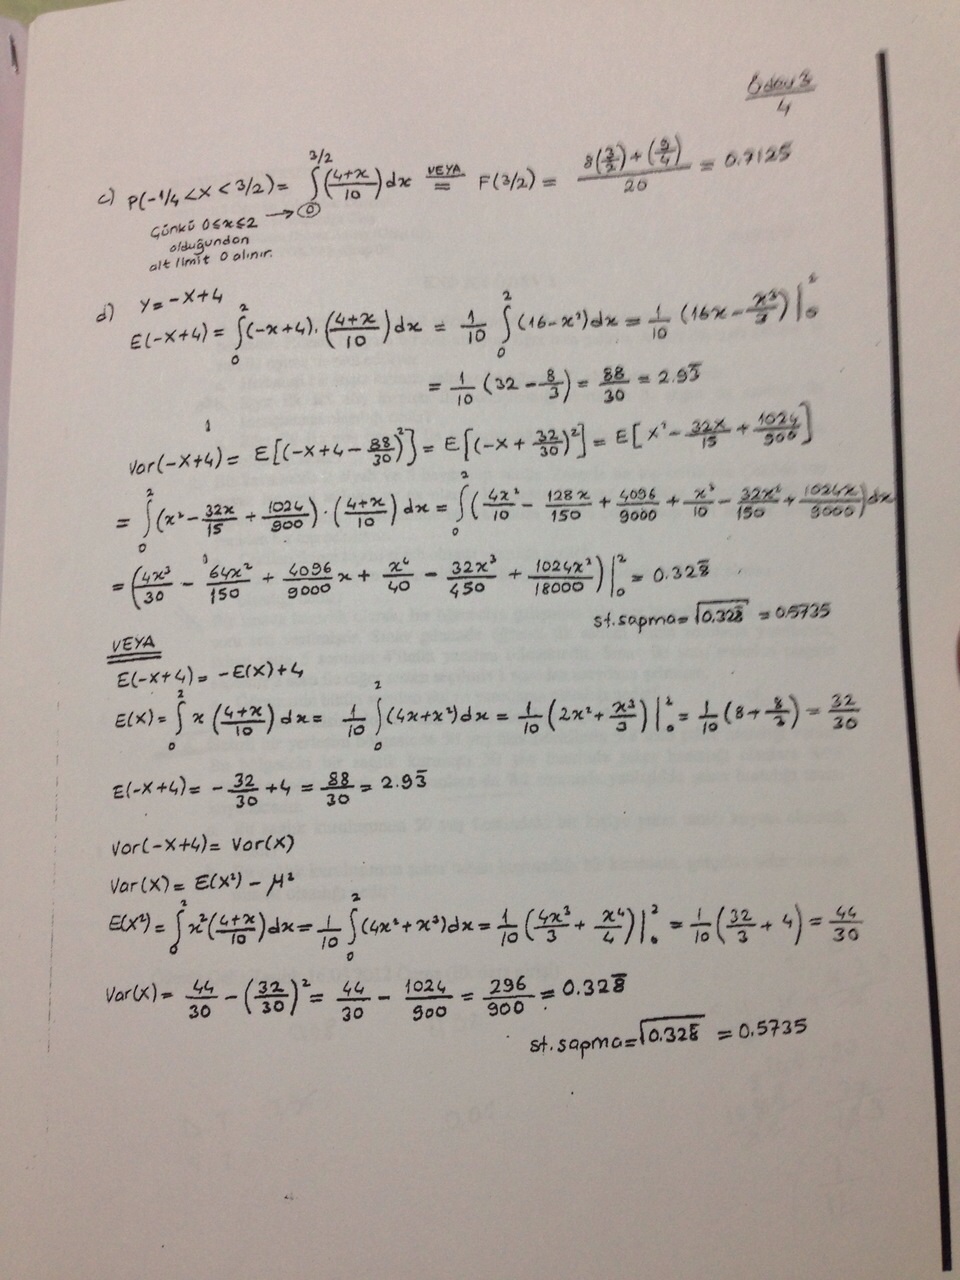 Ödev 3
4
c) P(-1/4 < X < 3/2) = ∫₀^{3/2} ((4+x)/10) dx = VEYA F(3/2) = (8(3/2) + (9/4))/20 = 0.7125
Çünkü 0≤x≤2 → 0
olduğundan
alt limit 0 alınır.
d) Y = -X+4
E(-X+4) = ∫₀² (-x+4)·((4+x)/10) dx = 1/10 ∫₀² (16-x²) dx = 1/10 (16x - x³/3) |₀²
= 1/10 (32 - 8/3) = 88/30 = 2.93̅
Var(-X+4) = E[(-X+4 - 88/30)²] = E[(-X + 32/30)²] = E[X² - 32X/15 + 1024/900]
= ∫₀² (x² - 32x/15 + 1024/900)·((4+x)/10) dx = ∫₀² (4x²/10 - 128x/150 + 4096/9000 + x³/10 - 32x²/150 + 1024x/9000) dx
= (4x³/30 - 64x²/150 + 4096/9000 x + x⁴/40 - 32x³/450 + 1024x²/18000) |₀² = 0.328̅
st.sapma = √0.328̅ = 0.5735
VEYA
E(-X+4) = -E(X)+4
E(X) = ∫₀² x ((4+x)/10) dx = 1/10 ∫₀² (4x+x²) dx = 1/10 (2x² + x³/3) |₀² = 1/10 (8 + 8/3) = 32/30
E(-X+4) = -32/30 + 4 = 88/30 = 2.93̅
Var(-X+4) = Var(X)
Var(X) = E(X²) - μ²
E(X²) = ∫₀² x² ((4+x)/10) dx = 1/10 ∫₀² (4x² + x³) dx = 1/10 (4x³/3 + x⁴/4) |₀² = 1/10 (32/3 + 4) = 44/30
Var(X) = 44/30 - (32/30)² = 44/30 - 1024/900 = 296/900 = 0.328̅
st.sapma = √0.328̅ = 0.5735